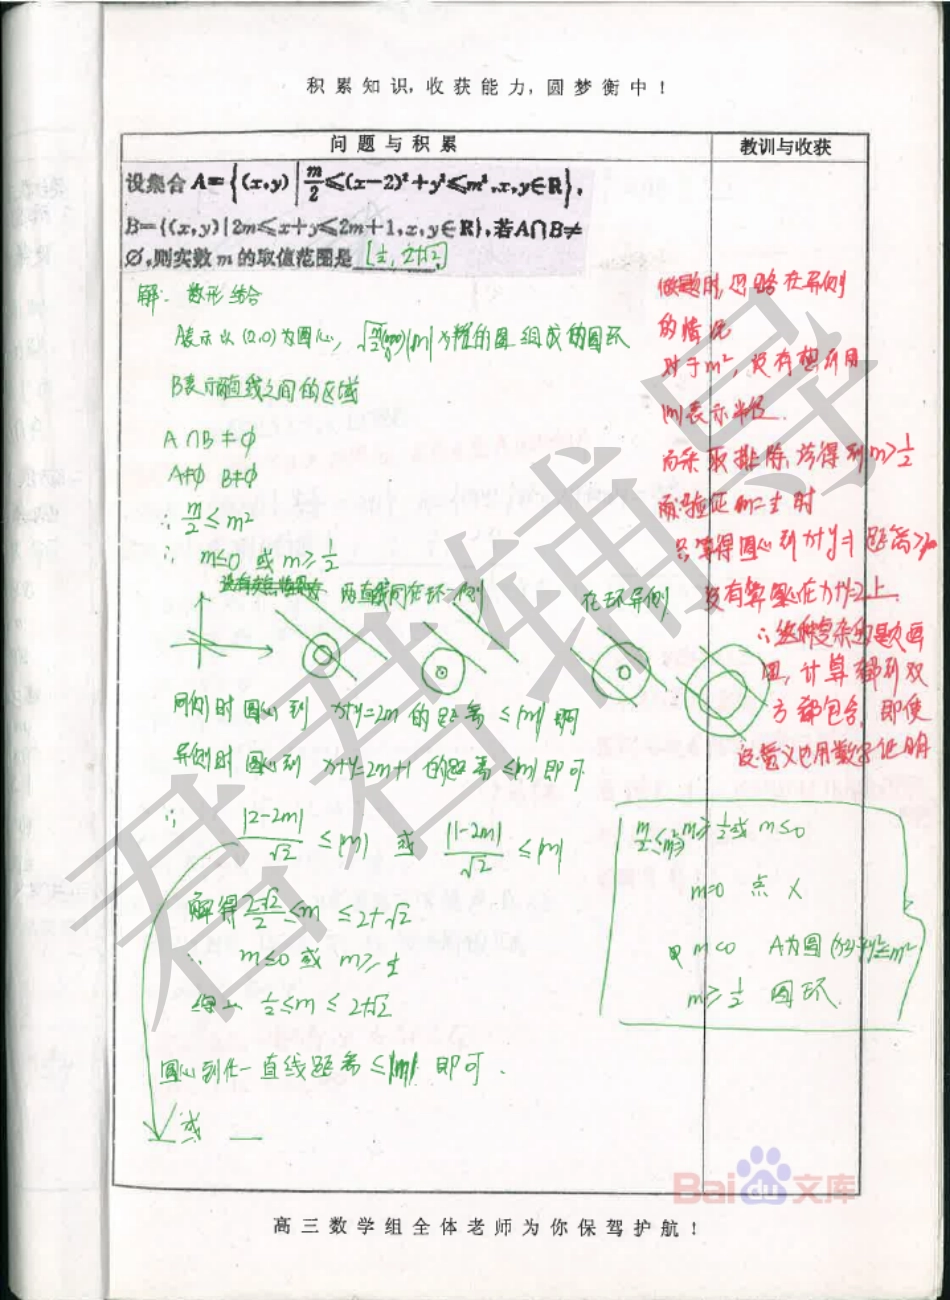 积累知识,收获能力,圆梦衡中!
问题与积累
教训与收获
设集合 A={(x,y)|m/2≤(x-2)²+y²≤m²,x,y∈R},
B={(x,y)|2m≤x+y≤2m+1,x,y∈R},若A∩B≠
∅,则实数 m 的取值范围是 [1/2, 2+√2]
解: 数形结合
A表示以(2,0)为圆心, 的圆组成的圆环
B表示两直线之间的区域
A∩B≠∅
A≠∅ B≠∅
∴ m/2≤m²
∴ m≤0 或 m≥1/2
两直线同在环一侧
在环异侧
同侧时圆心到 x+y=2m 的距离 ≤|m|
异侧时圆心到 x+y=2m+1 的距离≤|m|即可
∴ |2-2m|/√2 ≤|m| 或 |1-2m|/√2 ≤|m|
解得 (2-√2)/2≤m≤2+√2
∵ m≤0 或 m≥1/2
综上 1/2≤m≤2+√2
圆心到任一直线距离≤|m| 即可.
或
做题时,忽略在异侧
的情况
对于m²,没有想到用
|m|表示半径.
而采取排除,
只算得圆心到x+y=1距离>
没有算圆心在x+y=2上.
∴ 这种复杂的题画
图,计算都到双
方都包含,即使
没意义也用数字证明
m/2≤m² m≥1/2或m≤0
m=0 点 ×
m<0 A为圆(x-2)²+y²≤m²
m≥1/2 圆环
君君辅导
Baidu文库
高三数学组全体老师为你保驾护航!